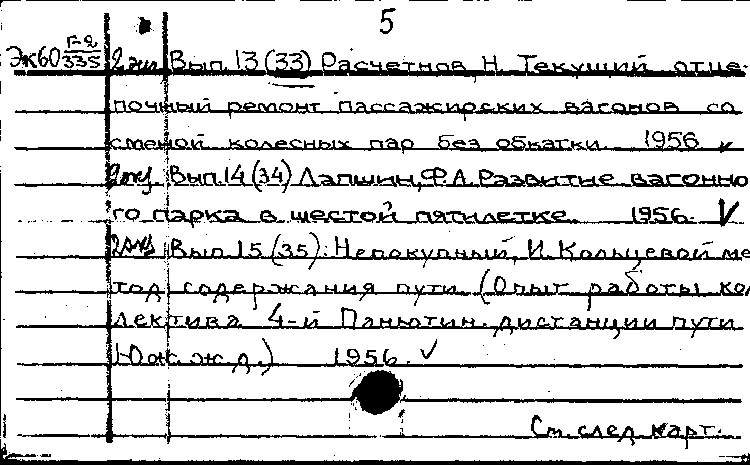 5
Эк60 Г-2/335 2 экз Вып. 13 (33) Расчетнов, Н. Текущий отце-
почный ремонт пассажирских вагонов со
сменой колесных пар без обкатки. 1956
2 экз. Вып. 14 (34) Лапшин, Ф.А. Развитие вагонно
го парка в шестой пятилетке. 1956.
2 экз Вып. 15 (35): Непокупный, И. Кольцевой ме
тод содержания пути. (Опыт работы кол
лектива 4-й Панютин. дистанции пути
Юж. ж.д.) 1956.
См. след. карт.